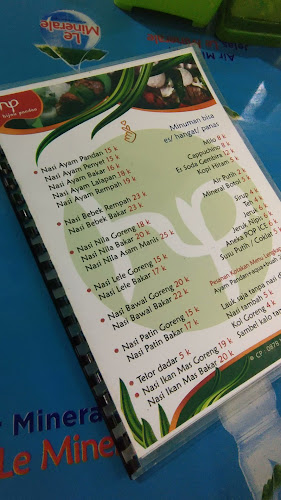 Le
Minerale
hp
hijau pandan
Nasi Ayam Pandan 15 k
Nasi Ayam Penyet 15 k
Nasi Ayam Bakar 16 k
Nasi Ayam Lalapan 19 k
Nasi Ayam Rempah 19 k
Nasi Bebek Rempah 23 k
Nasi Bebek Bakar 25 k
Nasi Nila Goreng 18 k
Nasi Nila Bakar 20 k
Nasi Nila Asam Manis 25 k
Nasi Lele Goreng 15 k
Nasi Lele Bakar 17 k
Nasi Bawal Goreng 20 k
Nasi Bawal Bakar 22 k
Nasi Patin Goreng 15 k
Nasi Patin Bakar 17 k
Telor dadar 5 k
Nasi Ikan Mas Goreng 19 k
Nasi Ikan Mas Bakar 20 k
Minuman bisa
es/ hangat/ panas
Milo 8 k
Cappucino 8 k
Es Soda Gembira 12 k
Kopi Hitam 5 k
Air Putih 2
Mineral Botol
Sirup
Teh 4
Jeruk
Jeruk Nipis
Aneka POP ICE
Susu Putih / Coklat 5
Pesanan Kotakan Menu
Ayam Pandan+aqua
Lauk saja tanpa nasi
Nasi tambah 5
Kol Goreng 4
Sambel kalo
CP : 0878
Air Minera
Le Mine